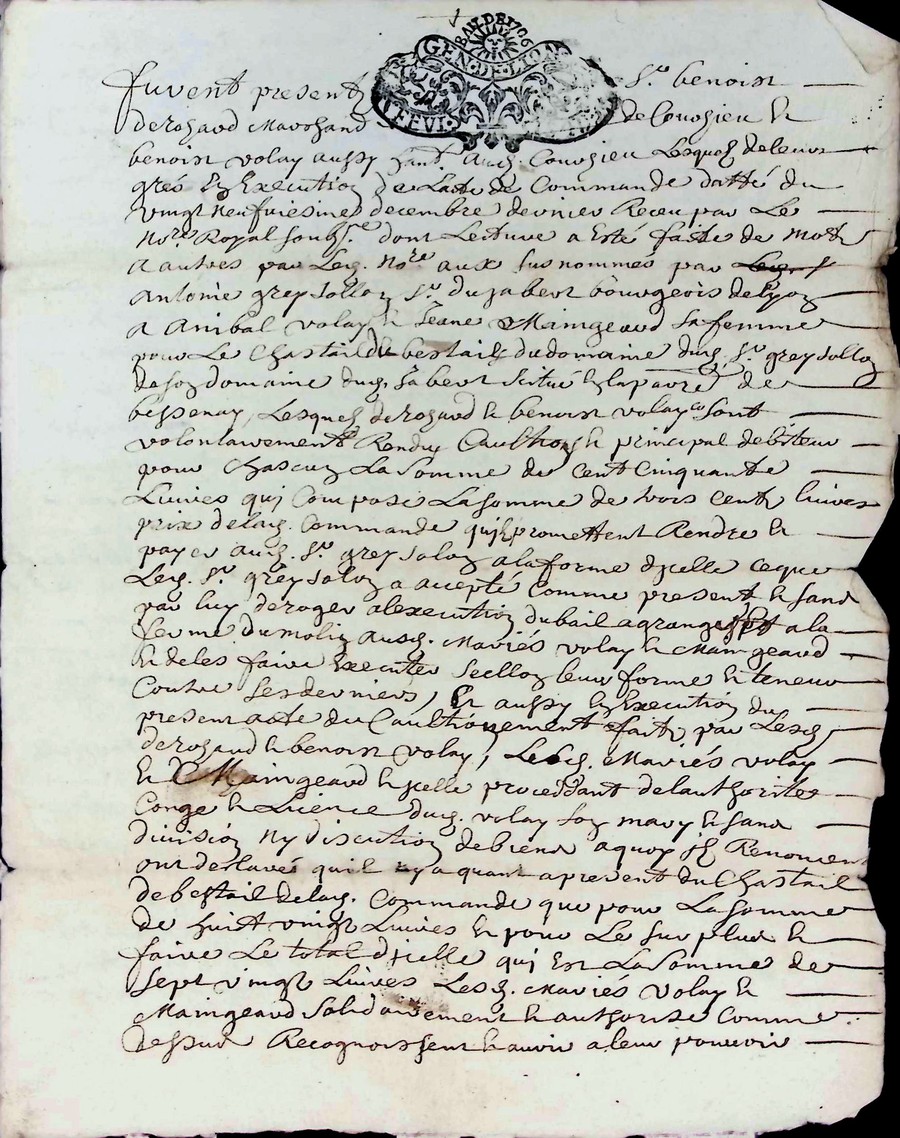 BAIL DE 1706
GEN. DE LION
Furent presentz Sr. benoist
derozard Marchand de Courzieu &
benoist volay aussy hant. aud. Courzieu Lesquelz de leurs
grés En Execution de Lacte de Commande datté du
vingt neufviesme decembre dernier Receu par Le
Nore. Royal soubs.é dont Lecture a Esté faitte de mot
a autres par Led. Nore aux susnommés par
Antoine greysollon Sr. du jabert bourgeois de Lyon
a Anibal volay & Jeane Maingeaud sa femme
pour Le Chastail de bestail du domaine dud. Sr. greysollon
de son domaine dud. Jabert scitué En la parre. de
bessenay, Lesquelz derozard & benoist volay se sont
volontairement Rendus Cauthion & principal debiteur
pour Chascun La Somme de Cent Cinquante
Livres qui Compose La somme de trois Cent livres
prix de lad. Commande quilz promettent Rendre &
payer aud. Sr. greysolon a la forme dicelle ce que
Led. Sr. greysolon a accepté Comme present & sans
par luy deroger a lexecution du bail a grange a la
ferme du molin ausd. Mariés volay & Maingeaud
& de les faire Executer scellon leur forme & teneur
Contre Ses derniers, Et aussy En Execution du
present acte du Cauthionement fait par Lesd.
derozard & benoist volay, Lesd. Mariés volay
& Maingeaud & icelle procedant de lauthorité
Congé & Licence dud. volay son mary & sans
division Ny discution de biens a quoy ilz Renoncent
ont desclaré quil ny a quant a present du Chastail
de bestail de lad. Commande que pour La somme
de huit vingt Livres & pour Le surplus &
faire Le total dicelle qui Est La Somme de
Sept vingt Livres Lesd. Mariés volay &
Maingeaud Solidairement & authorisé Comme
dessus Recognoissent & avoir a leur pouvoir